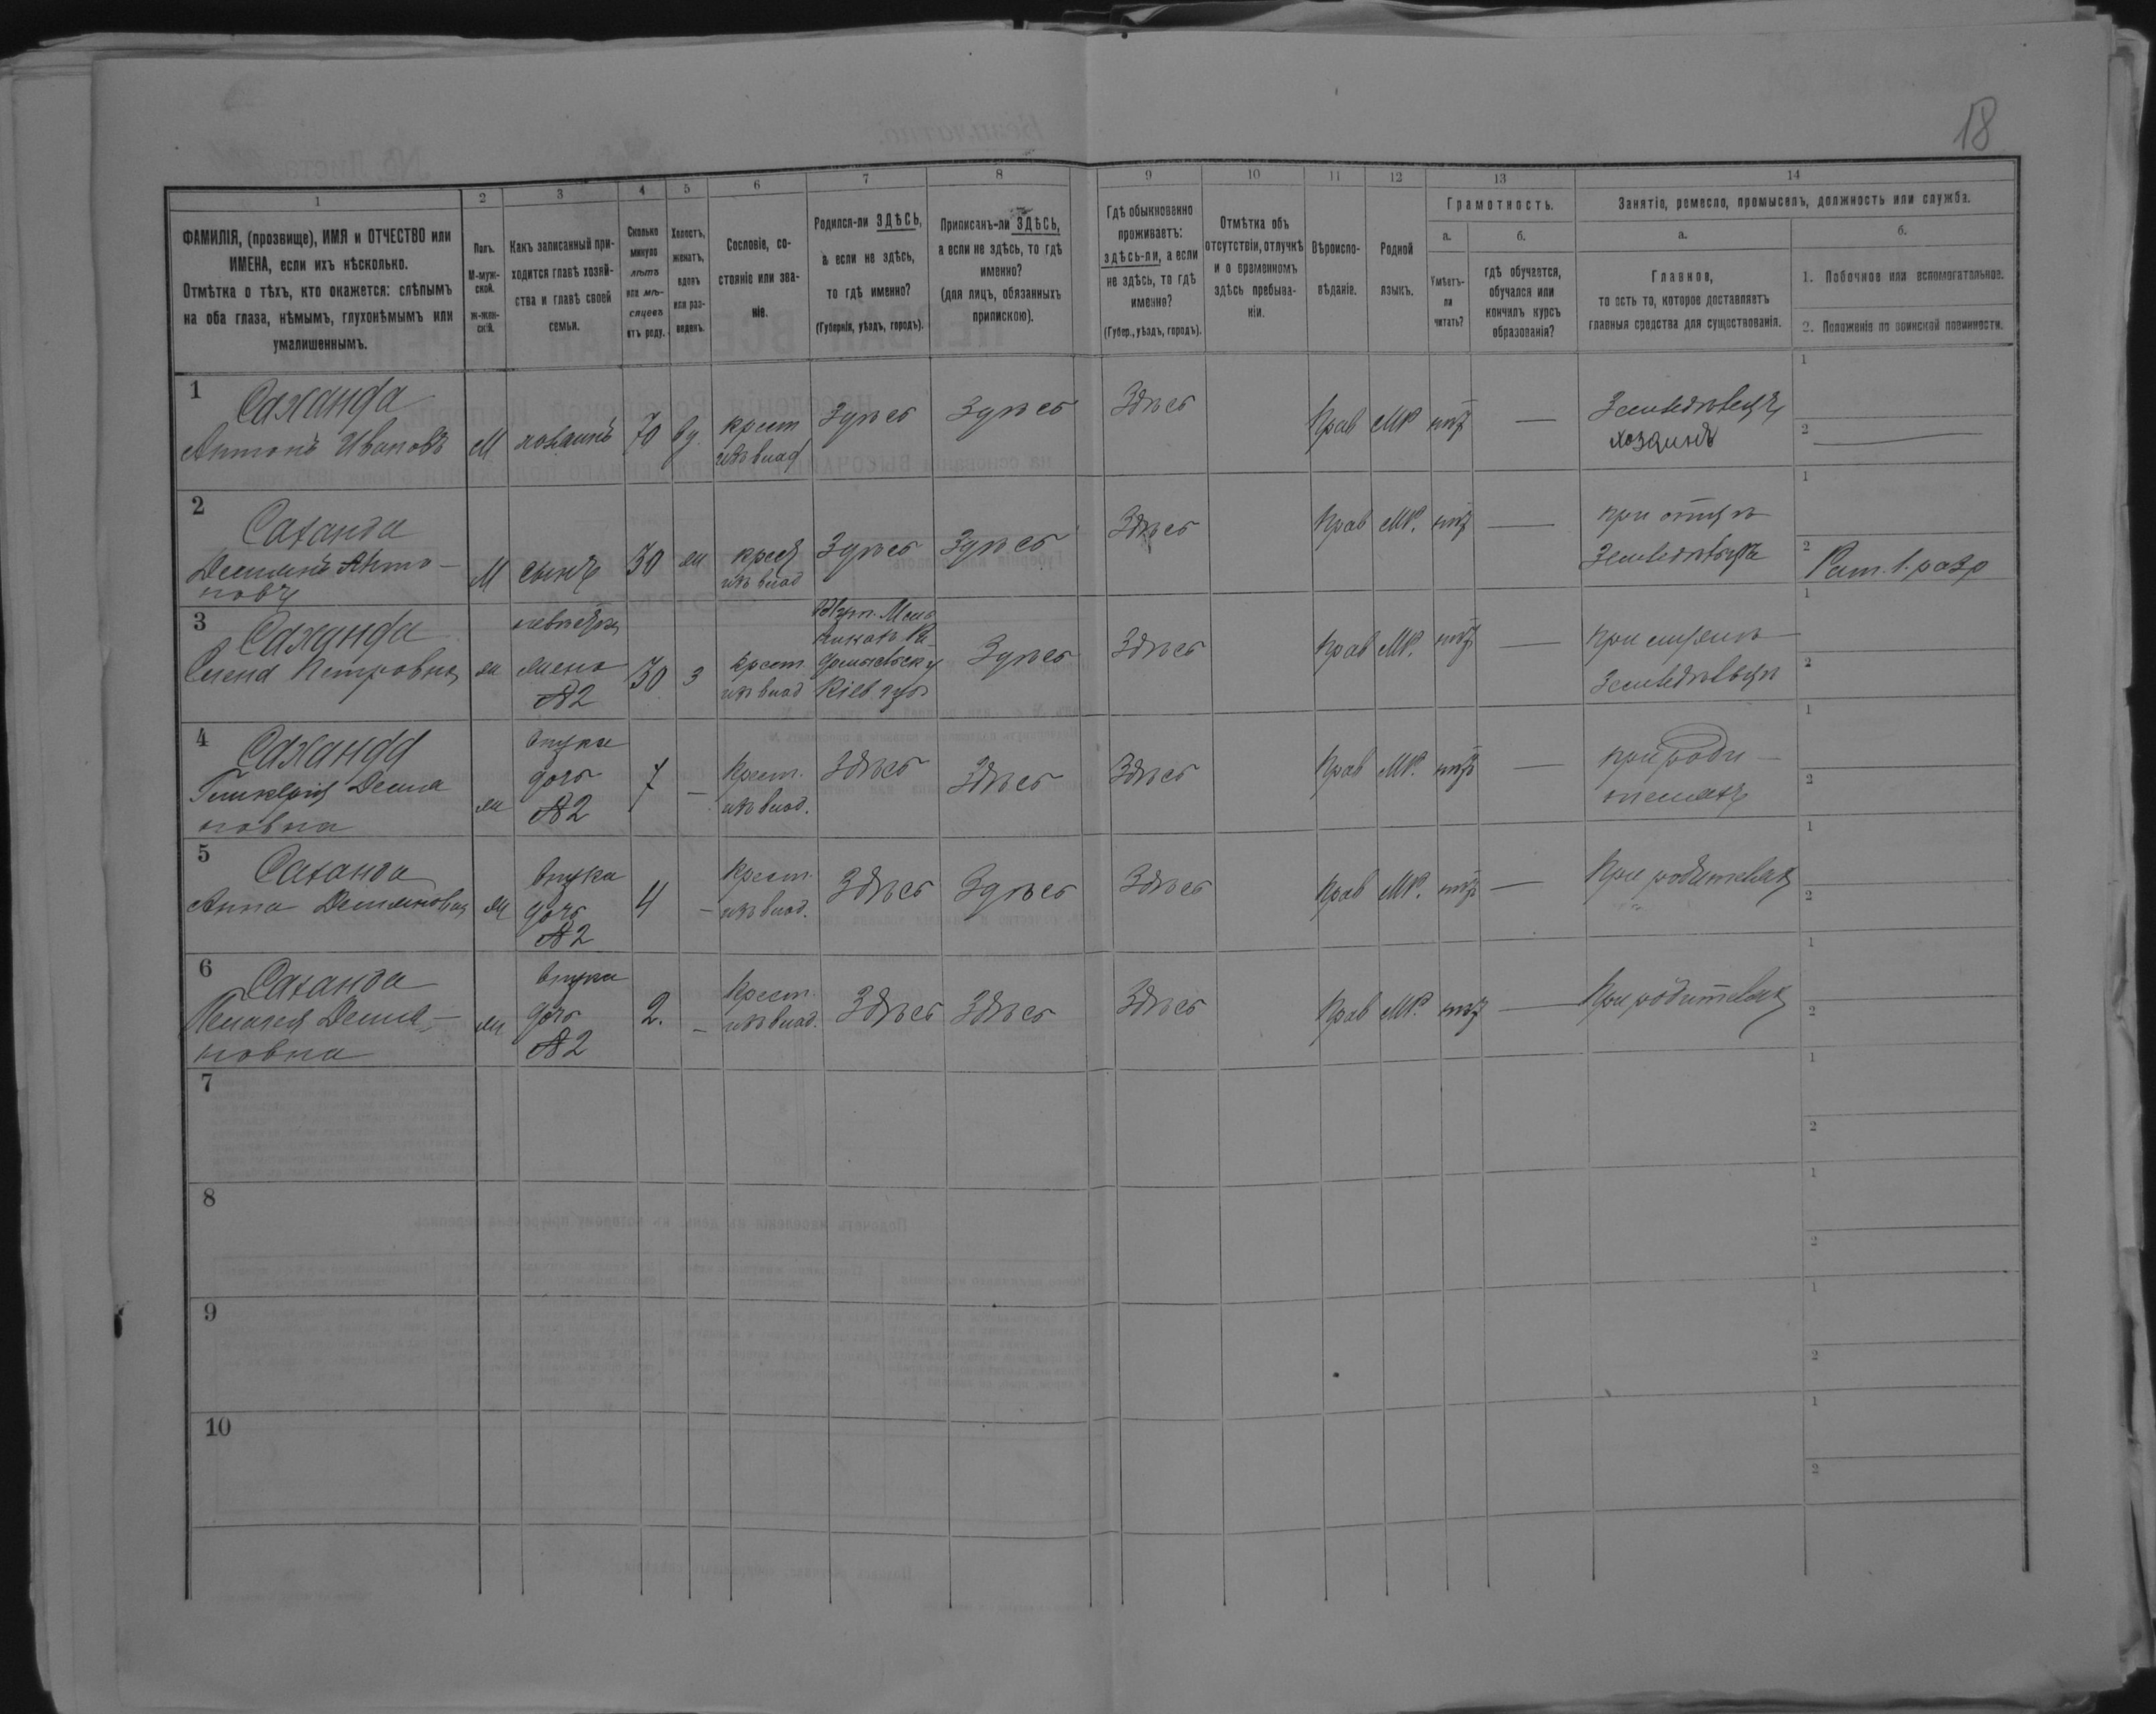 18
1 2 3 4 5 6 7 8 9 10 11 12 13 14
ФАМИЛІЯ, (прозвище), ИМЯ и ОТЧЕСТВО или
ИМЕНА, если ихъ нѣсколько.
Отмѣтка о тѣхъ, кто окажется: слѣпымъ
на оба глаза, нѣмымъ, глухонѣмымъ или
умалишеннымъ.
Полъ.
М-муж-
ской.
ж-жен-
скій.
Какъ записанный при-
ходится главѣ хозяй-
ства и главѣ своей
семьи.
Сколько
минуло
лѣтъ
или мѣ-
сяцевъ
отъ роду.
Холостъ,
женатъ,
вдовъ
или раз-
веденъ.
Сословіе, со-
стояніе или зва-
ніе.
Родился-ли ЗДѢСЬ,
а если не здѣсь,
то гдѣ именно?
(Губернія, уѣздъ, городъ).
Приписанъ-ли ЗДѢСЬ,
а если не здѣсь, то гдѣ
именно?
(для лицъ, обязанныхъ
припискою).
Гдѣ обыкновенно
проживаетъ:
здѣсь-ли, а если
не здѣсь, то гдѣ
именно?
(Губер., уѣздъ, городъ).
Отмѣтка объ
отсутствіи, отлучкѣ
и о временномъ
здѣсь пребыва-
ніи.
Вѣроиспо-
вѣданіе.
Родной
языкъ.
Грамотность.
а.
Умѣетъ-
ли
читать?
б.
гдѣ обучается,
обучался или
кончилъ курсъ
образованія?
Занятіе, ремесло, промыселъ, должность или служба.
а.
Главное,
то есть то, которое доставляетъ
главныя средства для существованія.
б.
1. Побочное или вспомогательное.
2. Положеніе по воинской повинности.
1
Саханда
Антонъ Ивановъ
М
хозяинъ
70
вд.
крест
изъ влад
Здѣсь
Здѣсь
Здѣсь
Прав
МР
нѣт
—
Земледѣлецъ
хозяинъ
1
2
2
Саханда
Демьянъ Анто-
новъ
М
сынъ
30
ж
крест
изъ влад
Здѣсь
Здѣсь
Здѣсь
Прав
МР.
нѣт
—
при отцѣ
Земледѣлецъ
1
2 Рат. 1. разр
3
Саханда
Елена Петровна
ж
невѣстка
жена
№2
30
з
крест.
изъ влад
Кіев губ
Здѣсь
Здѣсь
Прав
МР.
нѣт
—
при
1
2
4
Саханда
Демья
новна
ж
внука
дочь
№2
7
—
Крест.
изъ влад.
Здѣсь
Здѣсь
Здѣсь
Прав
МР.
нѣт
—
при роди-
телях
1
2
5
Саханда
Анна Демьяновна
ж
внука
дочь
№2
4
—
Крест.
изъ влад.
Здѣсь
Здѣсь
Здѣсь
Прав
МР.
нѣт
—
При родителях
1
2
6
Саханда
Пелагея Демья-
новна
ж
внука
дочь
№2
2.
—
Крест.
изъ влад.
Здѣсь
Здѣсь
Здѣсь
Прав
МР.
нѣт
—
При родителях
1
2
7
1
2
8
1
2
9
1
2
10
1
2